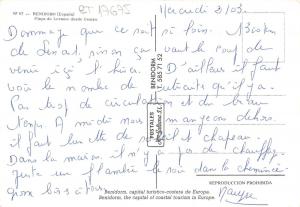 Nº 47 - BENIDORM (España)
Playa de Levante desde Canfali
RT 17675
Mercredi 2/03.
Dommage que ce soit si loin. 
de sinon ça vaut le coup de
venir ici l'hiver. D'ailleurs il faut
voir le nombre de qu'il y a.
Pas trop de circulation et du beau
temps. A midi nous mangeons dehors.
il faut lunette de soleil et chapeau.
Dans la maison, il n'y a pas de chauffage
juste un flambée le soir dans la cheminée
gros bisous
POSTALES
BENIDORM
T. 585 71 52
REPRODUCCION PROHIBIDA
Benidorm, capital turístico-costera de Europa.
Benidorm, the capital of coastal tourism in Europe.